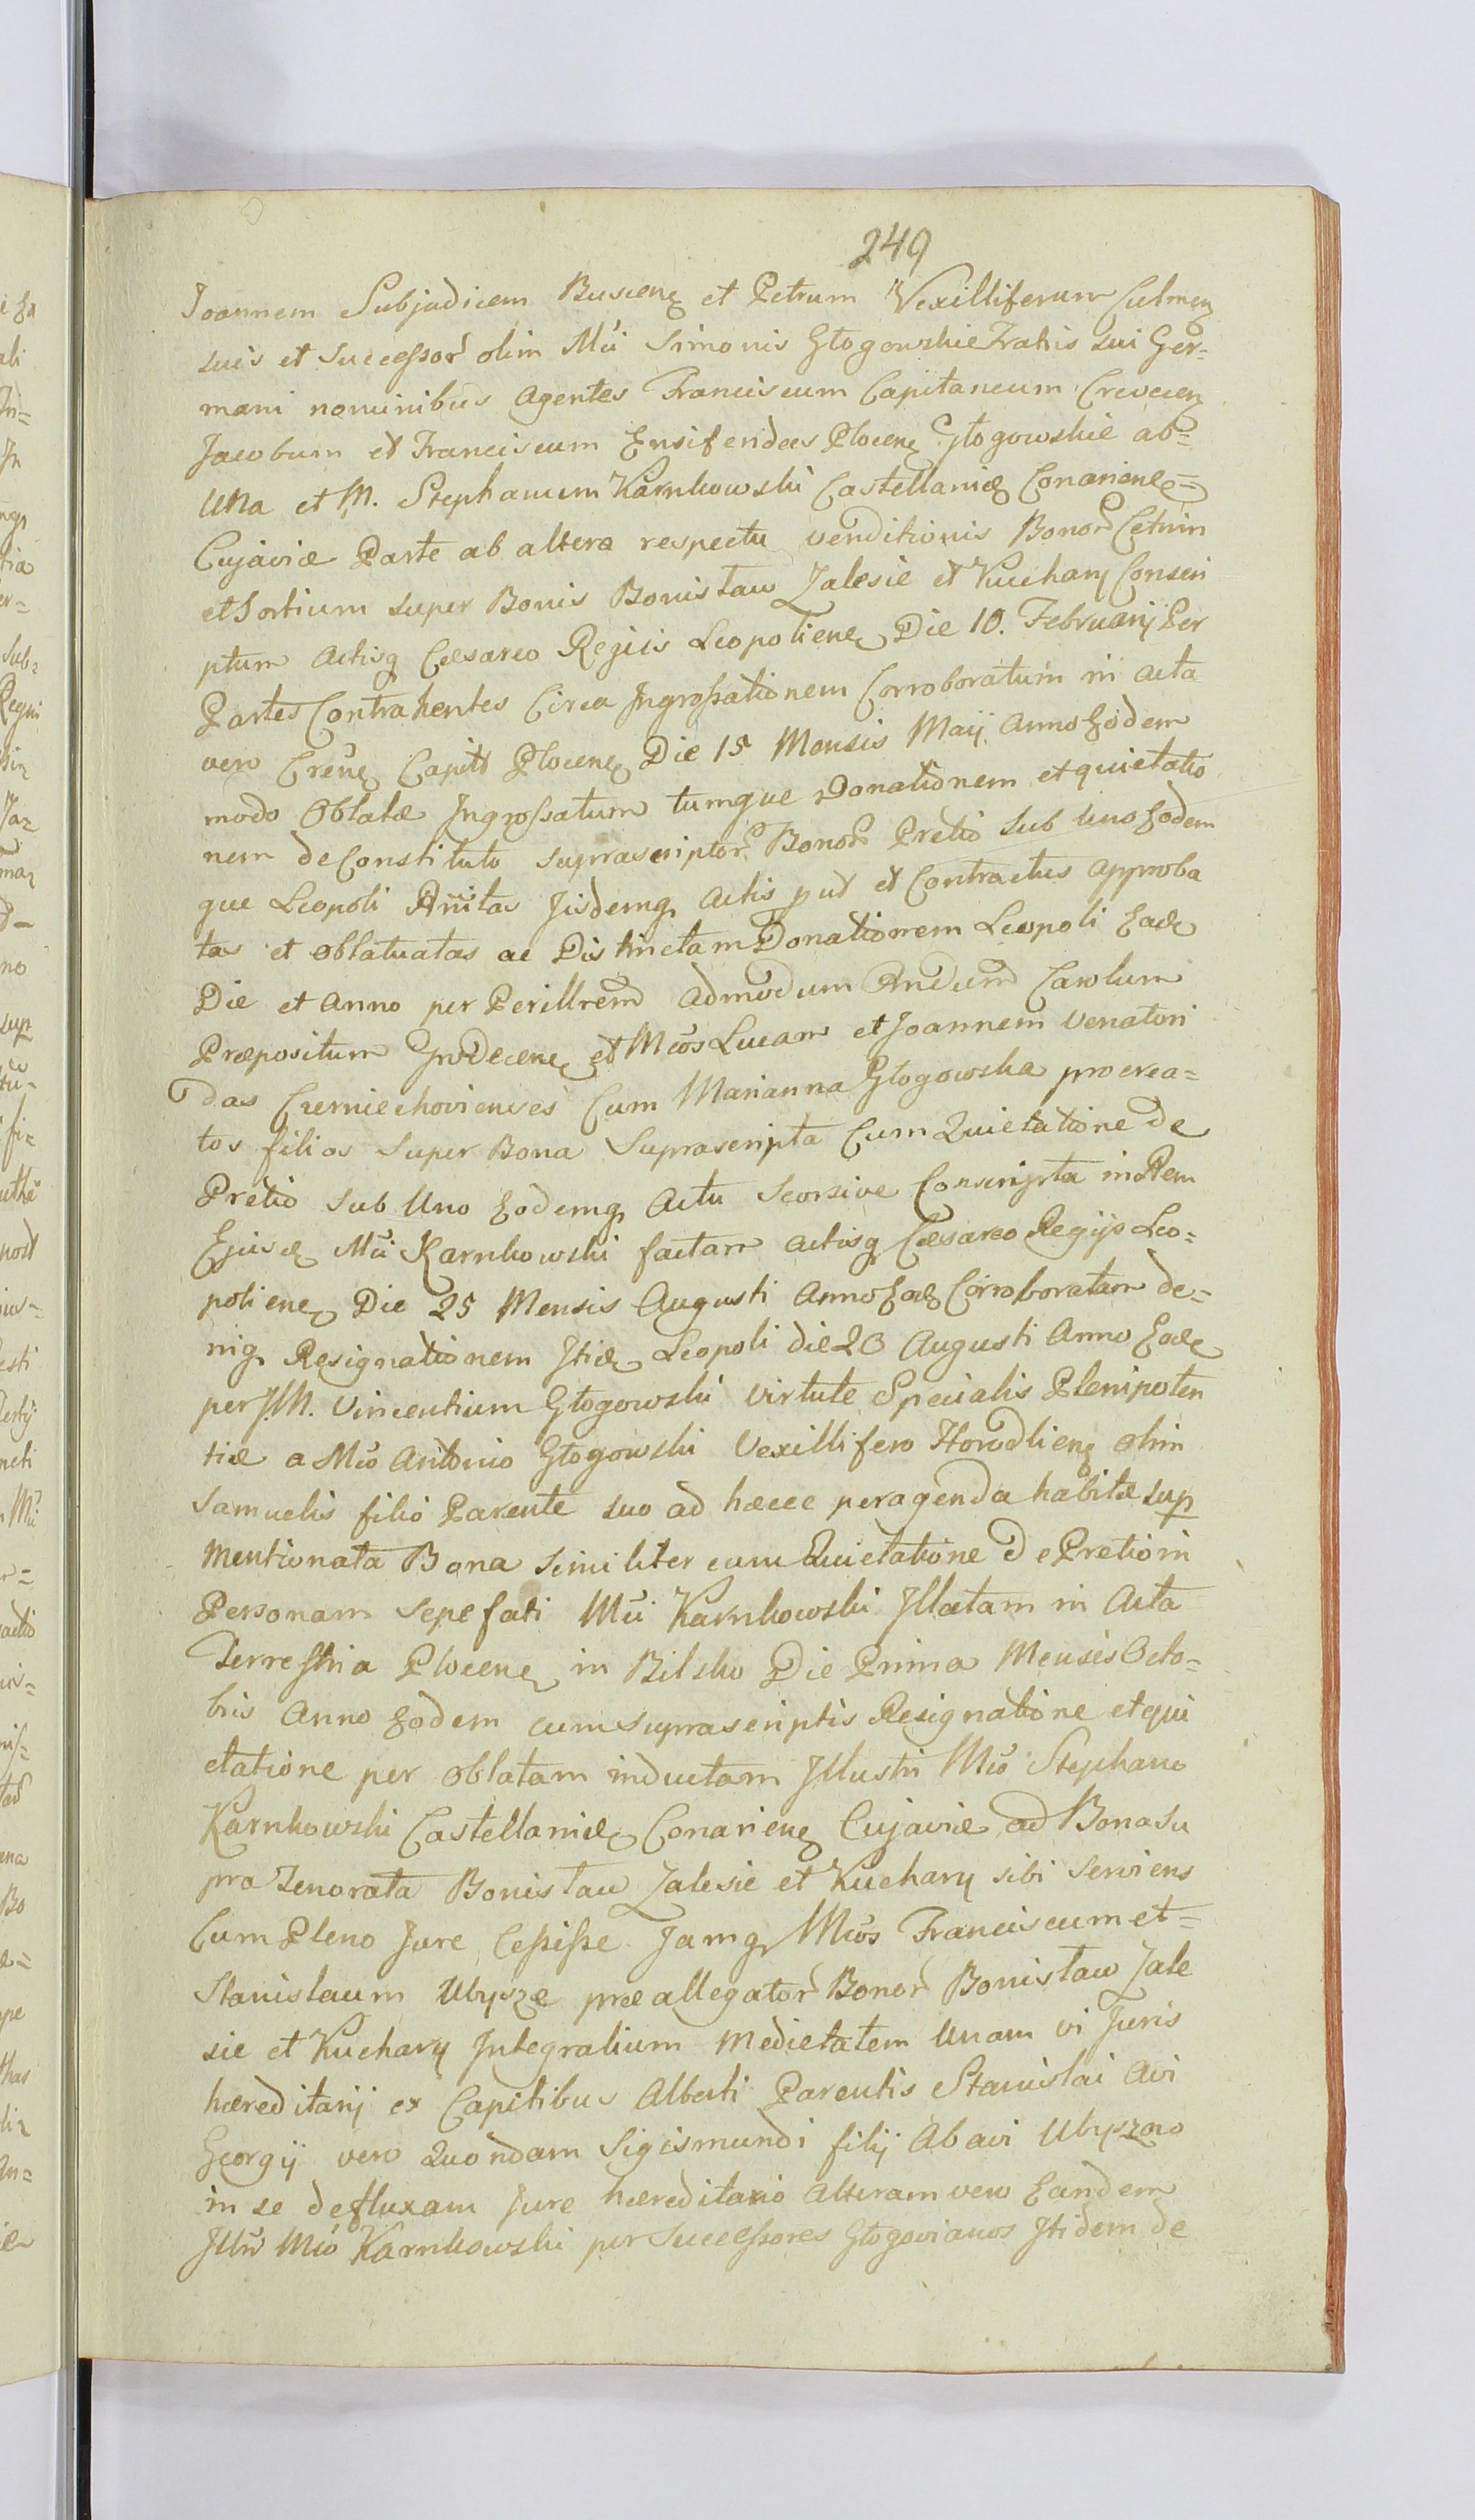 249
Joannem Subjudicem Buscenꝫ et Petrum Vexilliferum Culmenꝫ
suis et Successor̃ olim Mci Simonis Głogowskie Fratris sui Ger=
mani nominibus Agentes Franciscum Capitaneum Crevecenꝫ
Jacobum et Franciscum Ensiferidas Plocenꝫ Głogowskie ab=
Una et M. Stephanum Karnkowski Castellanidꝫ Conarienꝫ=
Cujaviæ Parte ab altera respectu venditionis Bonor̃ Cetnin
et Sortium super Bonis Bonisław Zalesie et Kuchary Conscri
ptum Actisqꝫ Cæsareo Regiis Leopolienꝫ Die 10. Februarij Per
Partes Contrahentes Circa Ingrossationem Corroboratum in Acta
vero Crenꝫ Capitt Plocenꝫ Die 15 Mensis Maij Anno Eodem
modo Oblatæ Ingrossatum tumque Donationem et quietatio
nem de Constituto suprascriptor̃ Bonor̃ Pretio sub Uno Eodem
que Leopoli Anitas Jisdemqꝫ Actis put et Contractus approba
tas et oblatuatas ac Distinctam Donationem Leopoli Eadꝫ
Die et Anno per Perillrem Admodum Rndum Carolum
Præpositum Grodecenꝫ et Mcos Lucam et Joannem Venatori
das Czerniechovienses Cum Marianna Głogowska procrea=
tos filios Super Bona Suprascripta Cum Quietatione de
Pretio Sub Uno Eodemqꝫ Actu Seorsive Conscripta in Rem
Ejusdꝫ Mci Karnkowski factam Actisqꝫ Cæsareo Regijs Leo=
polienꝫ Die 25 Mensis Augusti Anno Eodꝫ Corroboratam de=
niqꝫ Resignationem Itidꝫ Leopoli die 20 Augusti Anno Eodꝫ
per J.M. Vincentium Głogowski virtute Specialis Plenipoten
tiæ a Mco Antonio Głogowski Vexillifero Horodlienꝫ olim
Samuelis filio Parente suo ad hæcce peragenda habitæ sup
Mentionata Bona similiter cum Quietatione de Pretio in
Personam sepe fati Mci Karnkowski Illatam in Acta
Terrestria Plocenꝫ in Bilsko Die Prima Mensis Octo=
bris Anno Eodem cum suprascriptis Resignatione et qui
etatione per oblatam inductam Illustri Mco Stephano
Karnkowski Castellanidꝫ Conarienꝫ Cujaviæ ad Bona Su
pra Tenorata Bonisław Zalesie et Kuchary sibi serviens
Cum Pleno Jure Cessisse Jamqꝫ Mcos Franciscum et=
Stanislaum Ubysze præallegator̃ Bonor̃ Bonisław Zale
sie et Kuchary Integralium Medietatem Unam vi Juris
hæreditarij ex Capitibus Alberti Parentis Stanislai Avi
Georgij vero Quondam Sigismundi filij Abavi Ubyszow
in se defluxam Jure hæreditario Alteram vero Eandem
Illri Mco Karnkowski per Successores Głogovianos Itidem de